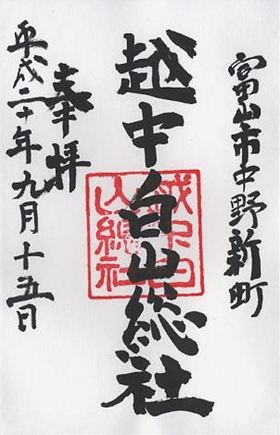 富山市中野新町
越中白山総社
奉拝
平成二十年九月十五日
越中白
山総社